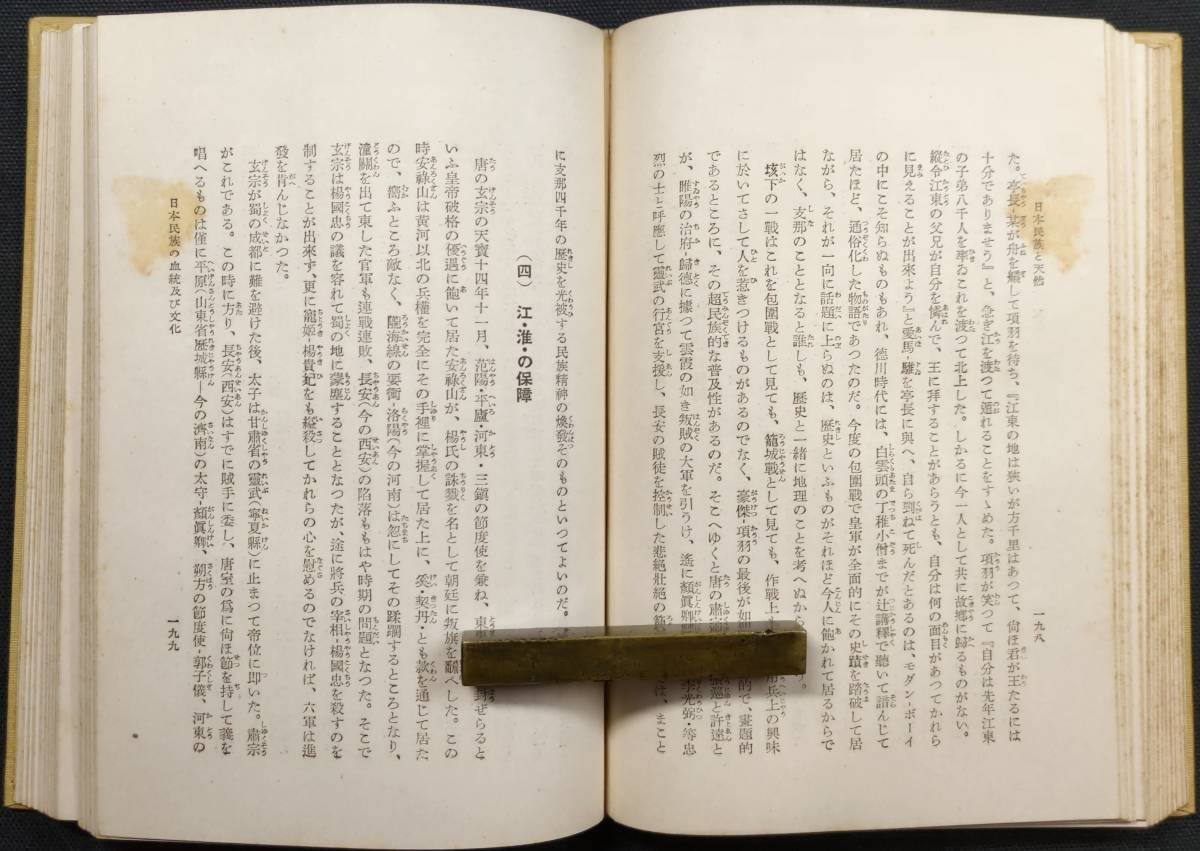 日本民族と天然
一九八
た。亭長‐某が舟を艤して項羽を待ち、『江東の地は狹いが方千里はあつて、尙ほ君が王たるには
十分でありませう』と、急ぎ江を渡つて遁れることをすゝめた。項羽が笑つて『自分は先年江東
の子弟八千人を率ゐこれを渡つて北上した。しかるに今一人として共に故鄕に歸るものがない。
縱令江東の父兄が自分を憐んで、王に拜することがあらうとも、自分は何の面目があつてかれら
に見えることが出來よう』と愛馬‐騅を亭長に與へ、自ら到ねて死んだとあるのは、モダン‐ボーイ
の中にこそ知らぬものもあれ、德川時代には、白雲頭の丁稚小僧までが辻講釋で聽いて諳んじて
居たほど、通俗化した物語であつたのだ。今度の包圍戰で皇軍が全面的にその史蹟を踏破して居
ながら、それが一向に話題に上らぬのは、歷史といふものがそれほど今人に飽かれて居るからで
はなく、支那のこととなると誰しも、歷史と一緖に地理のことを考へぬから
垓下の一戰はこれを包圍戰として見ても、籠城戰として見ても、作戰上も 用兵上の興味
に於いてさして人を惹きつけるものがあるのでなく、豪傑‐項羽の最後が如 的で、畫題的
であるところに、その超民族的な普及性があるのだ。そこへゆくと唐の肅宗 張巡と許遠と
が、睢陽の治府‐歸德に據つて雲霞の如き叛賊の大軍を引うけ、遙に顏眞卿 李光弼・等忠
烈の士と呼應して靈武の行宮を支援し、長安の賊徒を控制した悲絕壯絕の は、まこと
に支那四千年の歷史を光被する民族精神の煥發そのものといつてよいのだ。
（四）　江・淮・の保障
唐の玄宗の天寶十四年十一月、范陽・平廬・河東・三鎭の節度使を兼ね、東 封ぜらると
いふ皇帝破格の優遇に飽いて居た安祿山が、楊氏の誅戮を名として朝廷に叛旗を飜へした。この
時安祿山は黃河以北の兵權を完全にその手裡に掌握して居た上に、奚・契丹・とも款を通じて居た
ので、嚮ふところ敵なく、隴海線の要衝‐洛陽（今の河南）は忽にしてその蹂躙するところとなり、
潼關を出て東した官軍も連戰連敗、長安（今の西安）の陷落ももはや時期の問題となつた。そこで
玄宗は楊國忠の議を容れて蜀の地に蒙塵することとなつたが、途に將兵の宰相‐楊國忠を殺すのを
制することが出來ず、更に寵姬‐楊貴妃をも縊殺してかれらの心を慰めるのでなければ、六軍は進
發を肯んじなかつた。
玄宗が蜀の成都に難を避けた後、太子は甘肅省の靈武（寧夏縣）に止まつて帝位に卽いた。肅宗
がこれである。この時に方り、長安（西安）はすでに賊手に委し、唐室の爲に尙ほ節を持して義を
唱へるものは僅に平原（山東省歷城縣―今の濟南）の太守‐顏眞卿、朔方の節度使‐郭子儀、河東の
日本民族の血統及び文化
一九九